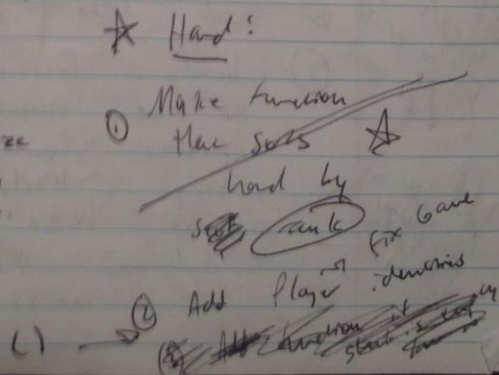 ☆ Hand:
① Make function
that sorts ☆
hand by
rank
fix Game
② Add Player identities
( ) →